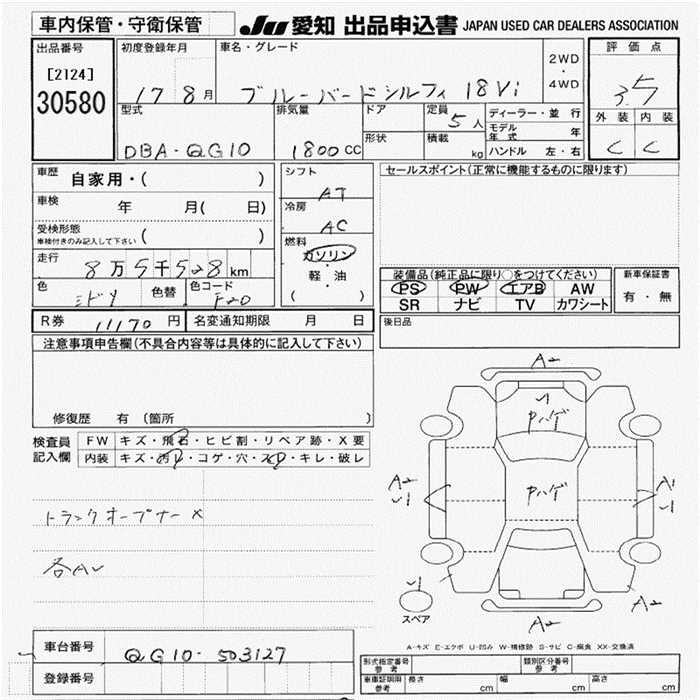 車内保管・守衛保管
JU 愛知 出品申込書 JAPAN USED CAR DEALERS ASSOCIATION
出品番号
[2124]
30580
初度登録年月
17 8月
車名・グレード
ブルーバードシルフィ 18Vi
2WD
・
4WD
評価点
3.5
外装 内装
C C
型式
DBA-QG10
排気量
1800CC
ドア
形状
定員
5人
積載
kg
ディーラー・並行
モデル年式 年
ハンドル 左・右
車歴 自家用・( )
車検 年 月( 日)
受検形態
車検付きのみ記入して下さい ( )
走行 8万5千528km
色 ミドリ 色替 色コード F20
シフト
AT
冷房
AC
燃料
ガソリン
・
軽・油
( )
セールスポイント(正常に機能するものに限ります)
装備品(純正品に限り〇をつけてください)
PS PW エアB AW
SR ナビ TV カワシート
新車保証書
有・無
R券 11170円 名変通知期限 月 日
後日品
注意事項申告欄(不具合内容等は具体的に記入して下さい)
修復歴 有 (箇所 )
検査員記入欄
FW キズ・飛石・ヒビ割・リペア跡・X要
内装 キズ・汚レ・コゲ・穴・スレ・キレ・破レ
トランクオープナー×
各AU
A2
√1
Pハゲ
A2
√1
Pハゲ
A1
√1
√1
スペア
A2
A2
A-キズ E-エクボ U-凹み W-補修跡 S-サビ C-腐食 XX-交換済
車台番号 QG10-503127
登録番号
形式指定番号
参考
類別区分番号
参考
車庫証明用
参考
長さ cm 幅 cm 高さ cm